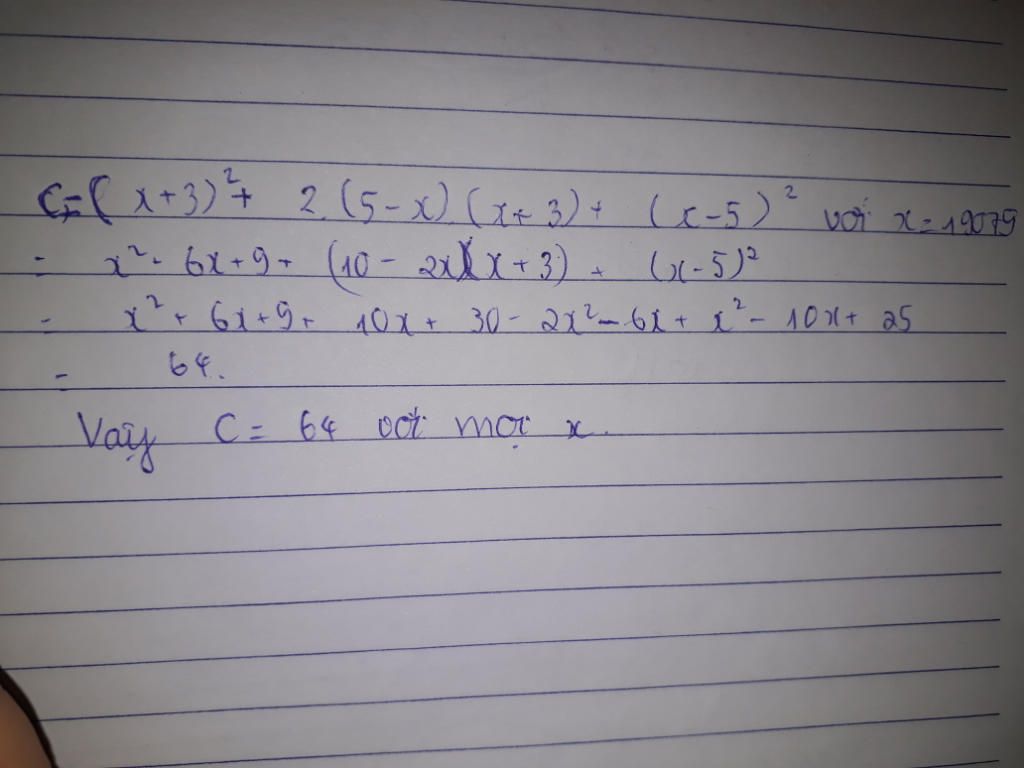 C = (x+3)² + 2.(5-x)(x+3) + (x-5)² với x = 19079
= x² - 6x + 9 + (10 - 2x)(x+3) + (x-5)²
= x² + 6x + 9 + 10x + 30 - 2x² - 6x + x² - 10x + 25
= 64.
Vậy C = 64 với mọi x.